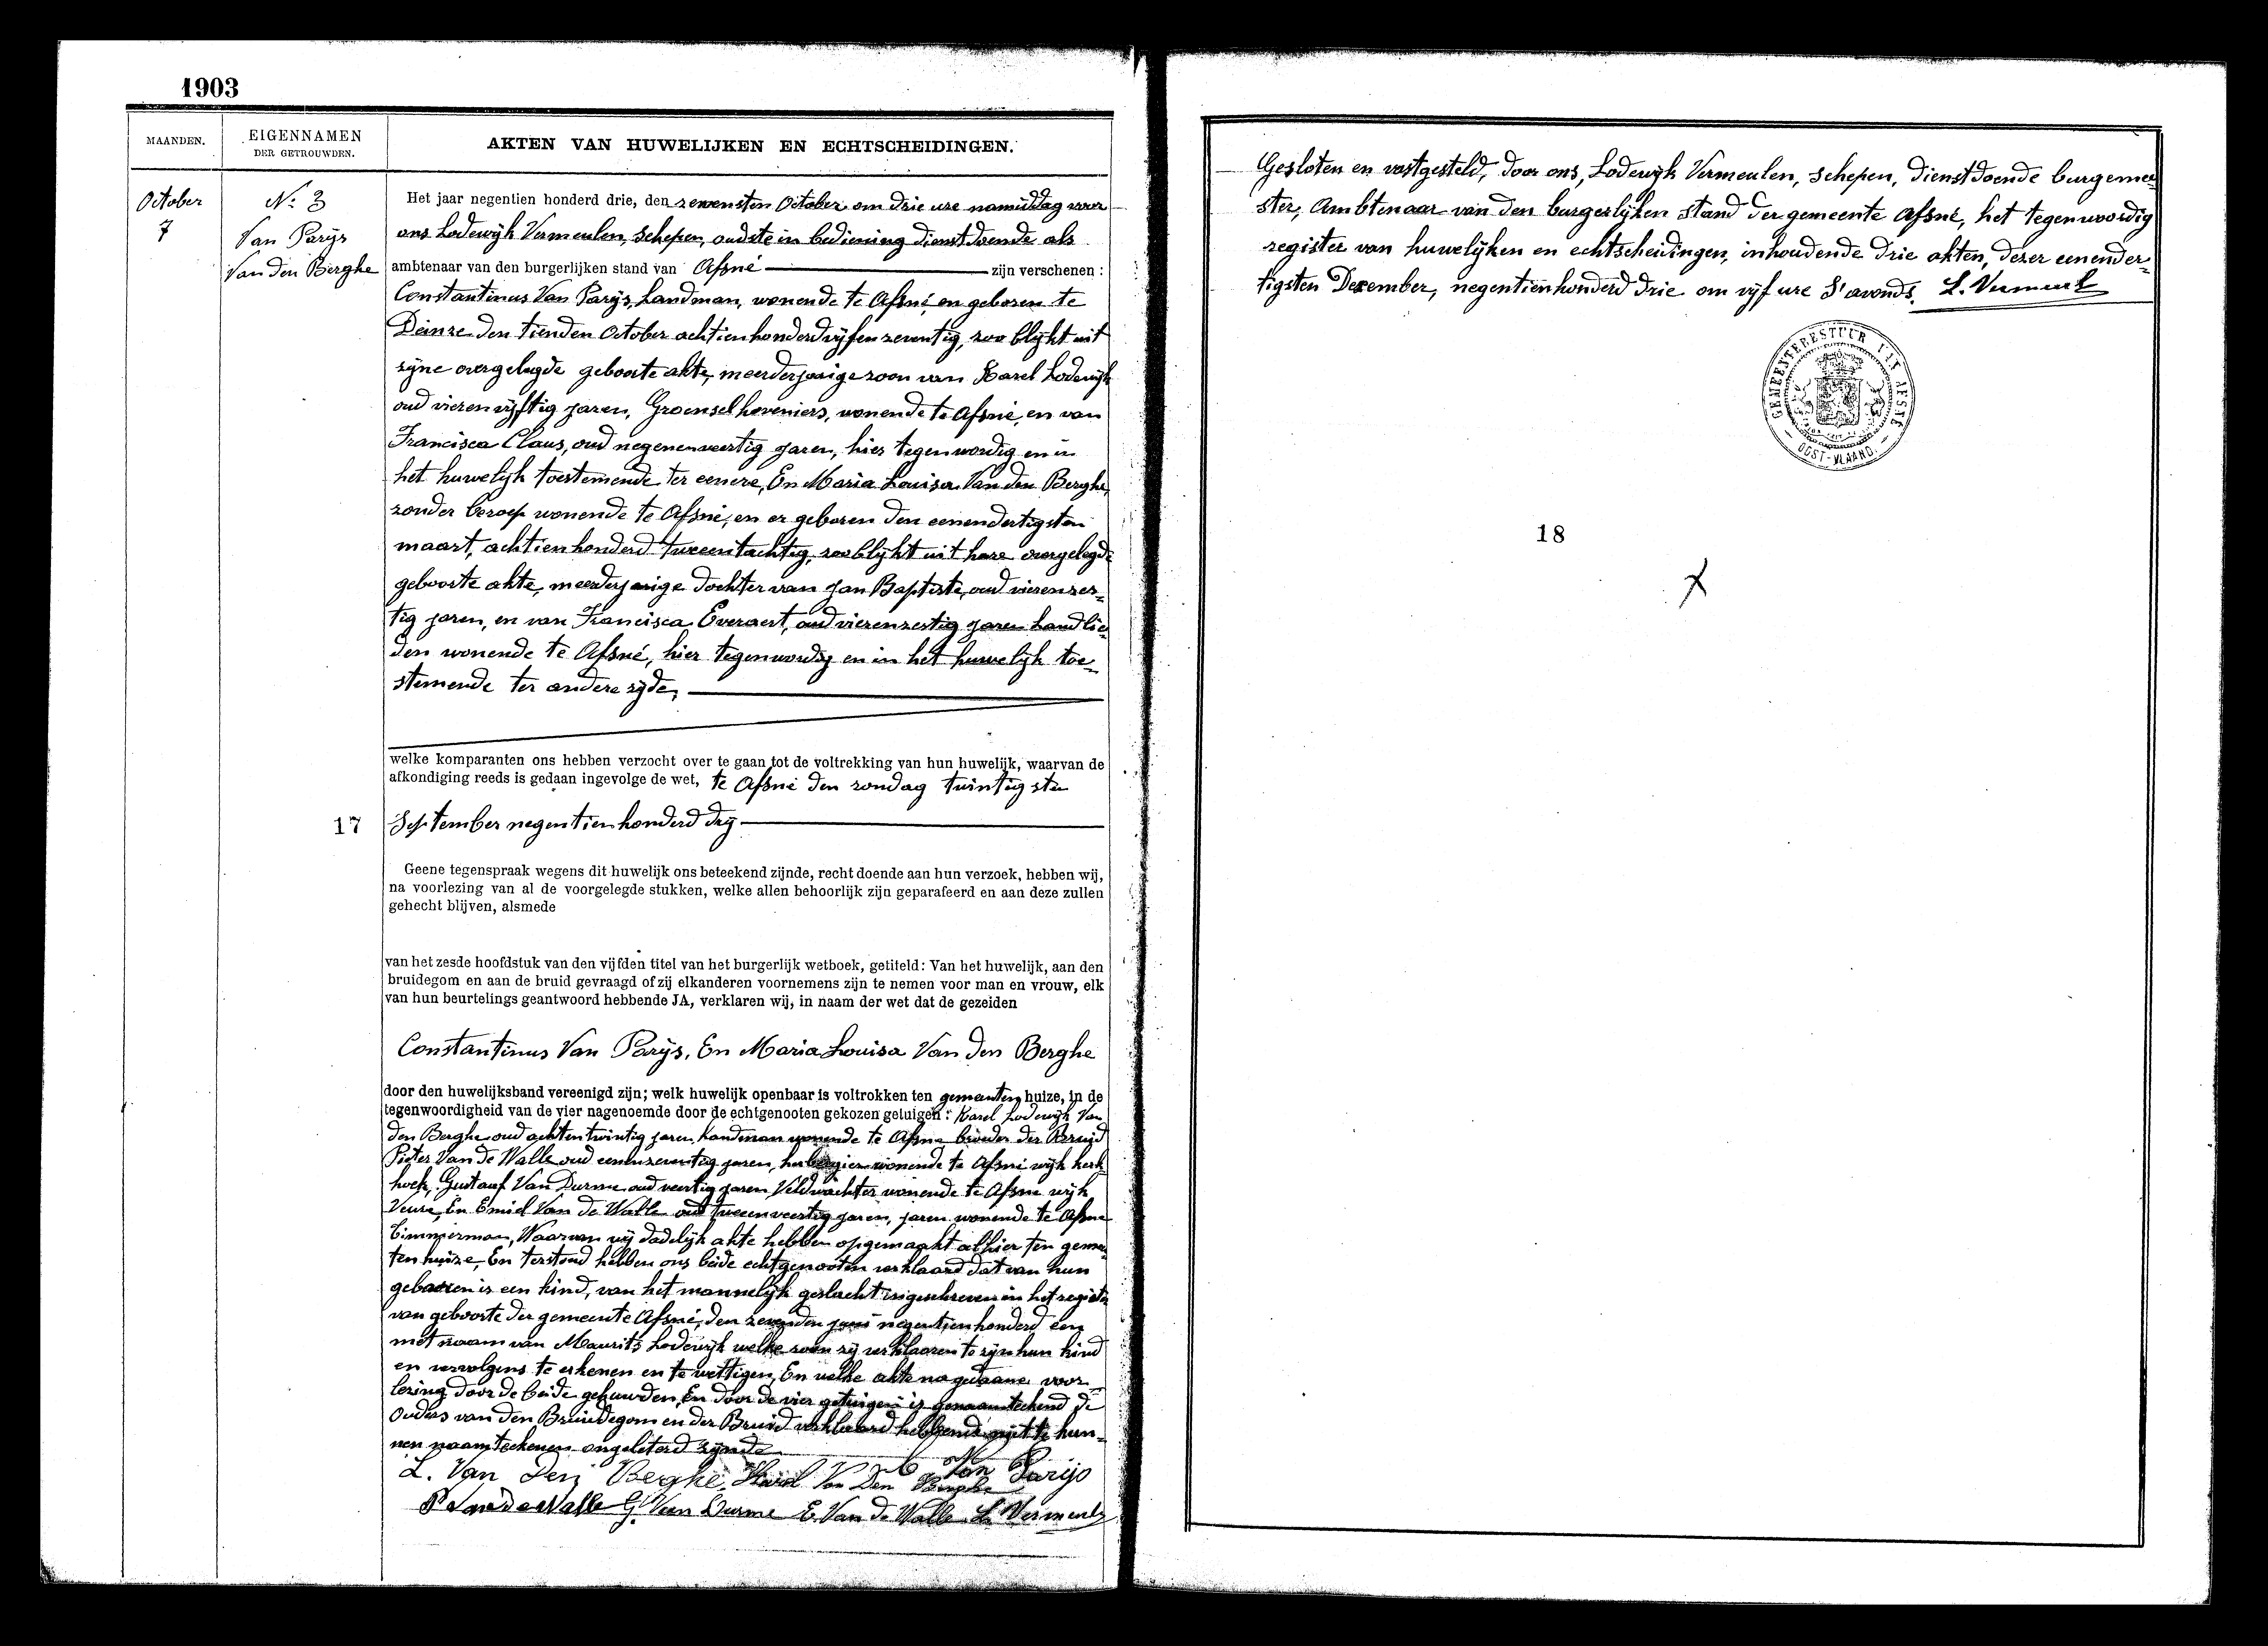 1903
MAANDEN.
EIGENNAMEN
DER GETROUWDEN.
AKTEN VAN HUWELIJKEN EN ECHTSCHEIDINGEN.
October
7
N.º 3
Van Parijs
Van den Berghe
Het jaar negentien honderd drie, den zevensten October om drie ure namiddag voor
ons Lodewijk Vermeulen, Schepen, oudste in bediening dienstdoende als
ambtenaar van den burgerlijken stand van Afsné zijn verschenen :
Constantinus Van Parijs, Landman, wonende te Afsné, en geboren te
Deinze den tienden October achtienhonderdvijfenzeventig, zoo blijkt uit
zijne overgelegde geboorte akte, meerderjarige zoon van Karel Lodewijk
oud vierenvijftig jaren, Groenselhoveniers, wonende te Afsné, en van
Francisca Claus, oud negenenveertig jaren, hier tegenwordig en in
het huwelijk toestemende ter eenere, En Maria Louisa Van den Berghe,
zonder beroep wonende te Afsné, en er geboren den eenendertigsten
maart, achtienhonderd tweeentachtig, zoo blijkt uit hare overgelegde
geboorte akte, meerderjarige dochter van Jan Baptiste, oud vierenzes-
tig jaren, en van Francisca Everaert, oud vierenzestig jaren landlie-
den wonende te Afsné, hier tegenwordig en in het huwelijk toe-
stemende ter andere zijde,
welke komparanten ons hebben verzocht over te gaan tot de voltrekking van hun huwelijk, waarvan de
afkondiging reeds is gedaan ingevolge de wet, te Afsné den zondag twintigsten
17
September negentienhonderd drij
Geene tegenspraak wegens dit huwelijk ons beteekend zijnde, recht doende aan hun verzoek, hebben wij,
na voorlezing van al de voorgelegde stukken, welke allen behoorlijk zijn geparafeerd en aan deze zullen
gehecht blijven, alsmede
van het zesde hoofdstuk van den vijfden titel van het burgerlijk wetboek, getiteld: Van het huwelijk, aan den
bruidegom en aan de bruid gevraagd of zij elkanderen voornemens zijn te nemen voor man en vrouw, elk
van hun beurtelings geantwoord hebbende JA, verklaren wij, in naam der wet dat de gezeiden
Constantinus Van Parijs, En Maria Louisa Van den Berghe
door den huwelijksband vereenigd zijn; welk huwelijk openbaar is voltrokken ten gemeenten huize, in de
tegenwoordigheid van de vier nagenoemde door de echtgenooten gekozen getuigen : Karel Lodewijk Van
den Berghe oud achtentwintig jaren Landman wonende te Afsné broeder der Bruid
Pieter Van de Walle oud eenenzeventig jaren, herbergier wonende te Afsné wijk kerk
hoek, Gustaaf Van Durme oud veertig jaren Veldwachter wonende te Afsné wijk
Veure, En Emiel Van de Walle oud tweeenveertig jaren, jaren wonende te Afsné
Timmerman, Waarvan wij dadelijk akte hebben opgemaakt alhier ten gemeen
ten huize, En terstond hebben ons beide echtgenooten verklaard dat van hun
geboren is een kind, van het mannelijk geslacht ingeschreven in het register
van geboorte der gemeente Afsné, den zevenden juni negentienhonderd een
met naam van Maurits Lodewijk welke zoon zij verklaaren te zijn hun kind
en vervolgens te erkenen en te wettigen, En welke akte na gedaane voor-
lezing door de beide gehuwden, En door de vier getuigen is genaamteekend de
Ouders van den Bruidegom en der Bruid verklaard hebbende niet te kun-
nen naamteekenen ongeleterd zijnde
L. Van Den Beghe Karel Van Den Berghe C Van Parijs
P Van de Walle G. Van Durme E. Van de Walle L. Vermeulen
Gesloten en vastgesteld, door ons, Lodewijk Vermeulen, Schepen, dienstdoende burgemee
ster, Ambtenaar van den burgerlijken stand der gemeente Afsné, het tegenwoordig
register van huwelijken en echtscheidingen, inhoudende drie akten, dezer eenender-
tigsten December, negentienhonderd drie om vijf ure S'avonds. L. Vermeul
GEMEENTEBESTUUR VAN AFSNÉ
OOST-VLAAND.
18